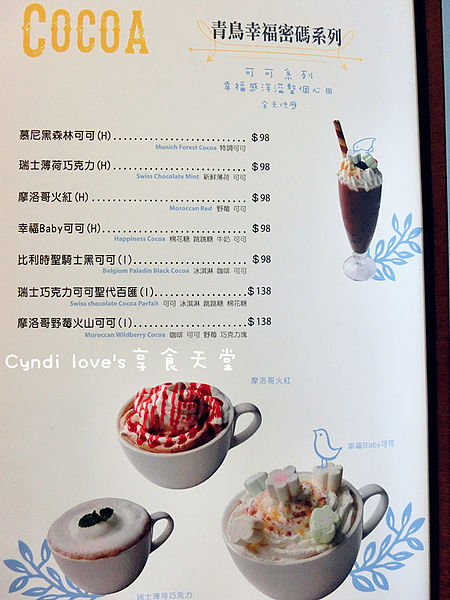 COCOA
青鳥幸福密碼系列
可可系列
幸福感洋溢整個心田
全天供應
慕尼黑森林可可(H)........................$98
Munich Forest Cocoa 特調可可
瑞士薄荷巧克力(H)........................$98
Swiss Chocolate Mint 新鮮薄荷 可可
摩洛哥火紅(H)............................$98
Moroccan Red 野莓 可可
幸福Baby可可(H)..........................$98
Happiness Cocoa 棉花糖 跳跳糖 牛奶 可可
比利時聖騎士黑可可(I)....................$98
Belgium Paladin Black Cocoa 冰淇淋 咖啡 可可
瑞士巧克力可可聖代百匯(I)................$138
Swiss chocolate Cocoa Parfait 可可 冰淇淋 跳跳糖 棉花糖
摩洛哥野莓火山可可(I)....................$138
Moroccan Wildberry Cocoa 咖啡 可可 野莓 巧克力塊
Cyndi love's享食天堂
摩洛哥火紅
幸福Baby可可
瑞士薄荷巧克力